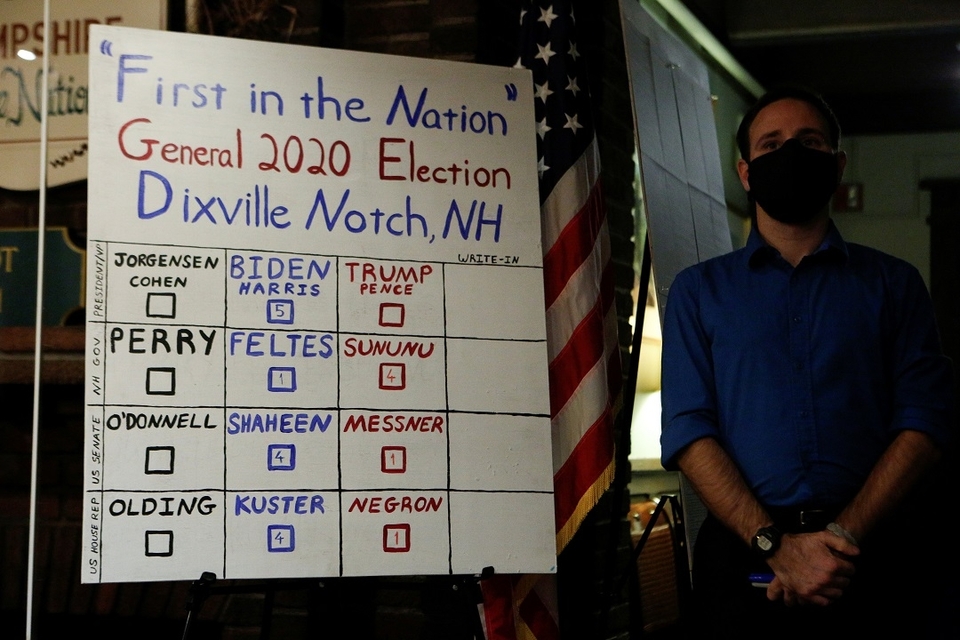 MPSHIRE
Natio
"First in the Nation"
General 2020 Election
Dixville Notch, NH
WRITE-IN
PRESIDENT/VP
JORGENSEN
COHEN
BIDEN
HARRIS
5
TRUMP
PENCE
NH GOV
PERRY
FELTES
1
SUNUNU
4
US SENATE
O'DONNELL
SHAHEEN
4
MESSNER
1
US HOUSE REP
OLDING
KUSTER
4
NEGRON
1